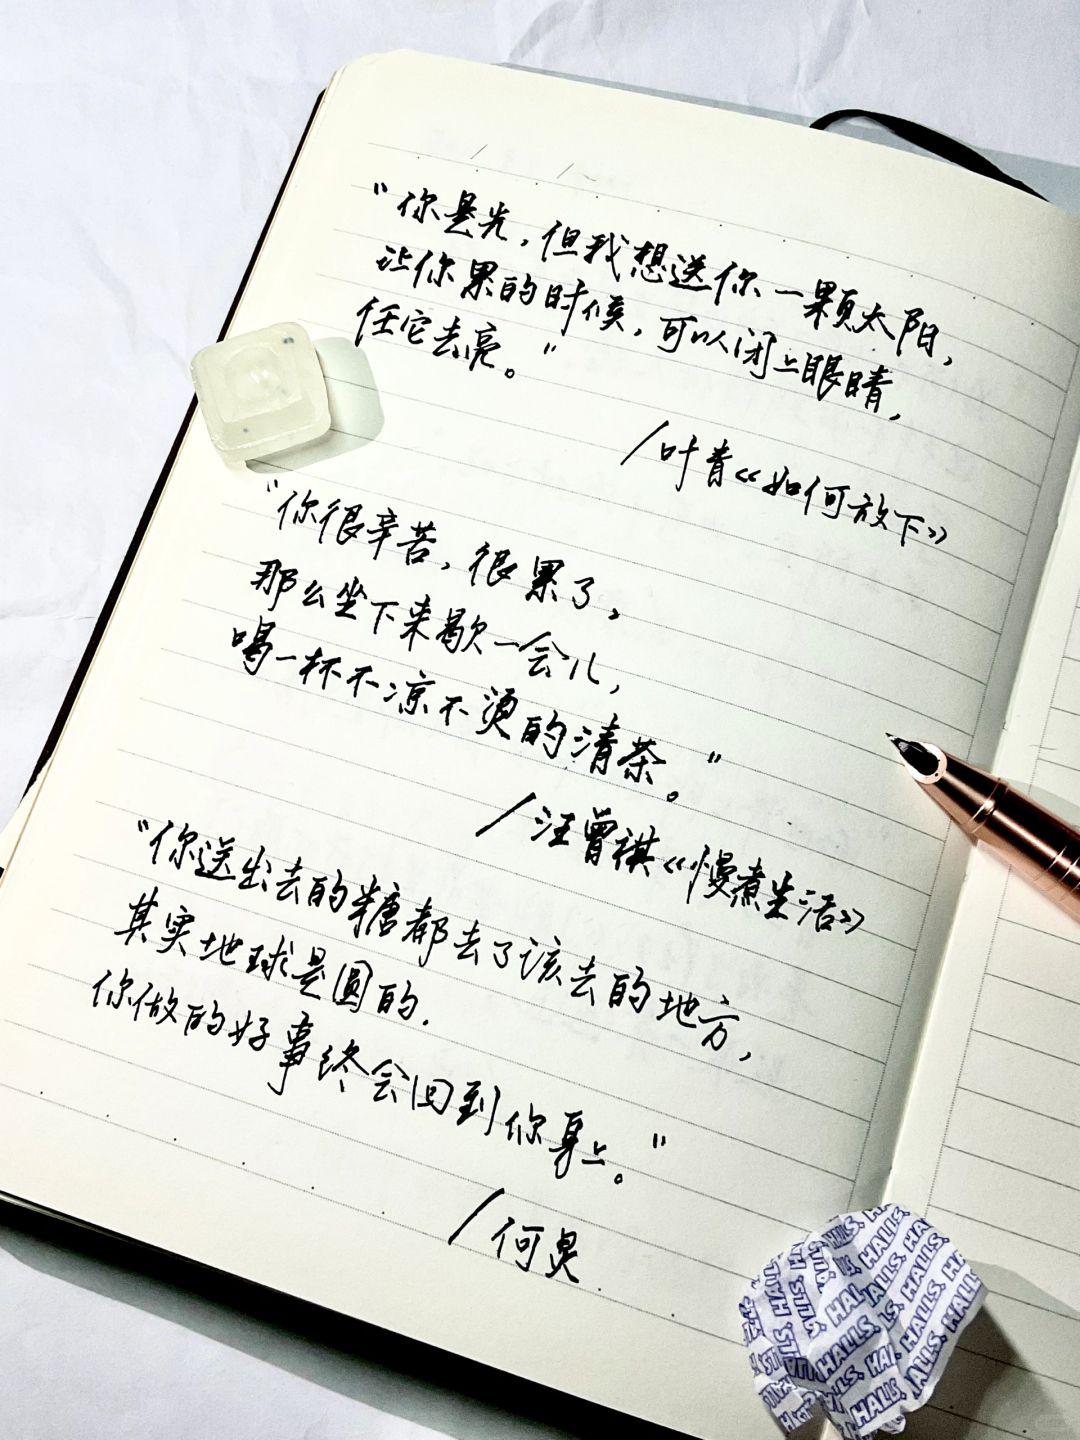 "你是光，但我想送你一颗太阳，
让你累的时候，可以闭上眼睛，
任它去亮。"
/叶青《如何放下》
"你很辛苦，很累了，
那么坐下来歇一会儿，
喝一杯不凉不烫的清茶。"
/汪曾祺《慢煮生活》
"你送出去的糖都去了该去的地方，
其实地球是圆的.
你做的好事终会回到你身上。"
/何炅
HALLS.